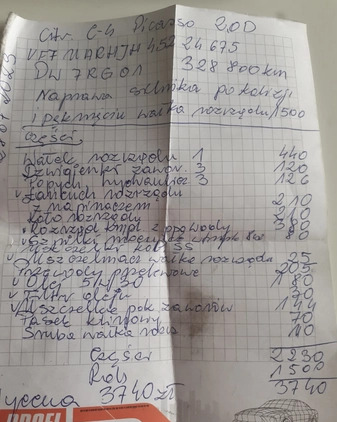 Citr. C-4 Picasso 2,0D
VF7 UARHJH 45224675
DW 7RG01 328 800 km
Naprawa silnika po kolizji
i pęknięciu wałka rozrządu 1500
Części
Wałek rozrządu 1 440
Dźwigienki zawor. 3 120
Popych hydraulicz 3 126
Łańcuch rozrządu
z napinaczem 210
Koło rozrządu 210
Rozrząd kompl. z p. wody 380
Szpilki 80
Uszczelniacz wałka rozrządu 25
przelewowe 205
Olej 5W30 180
Filtr oleju
Uszczelka pok. zaworów 144
Pasek klinowy 70
Śruba wałka 10
Części 2230
Rob 1500
3740
3740 zł